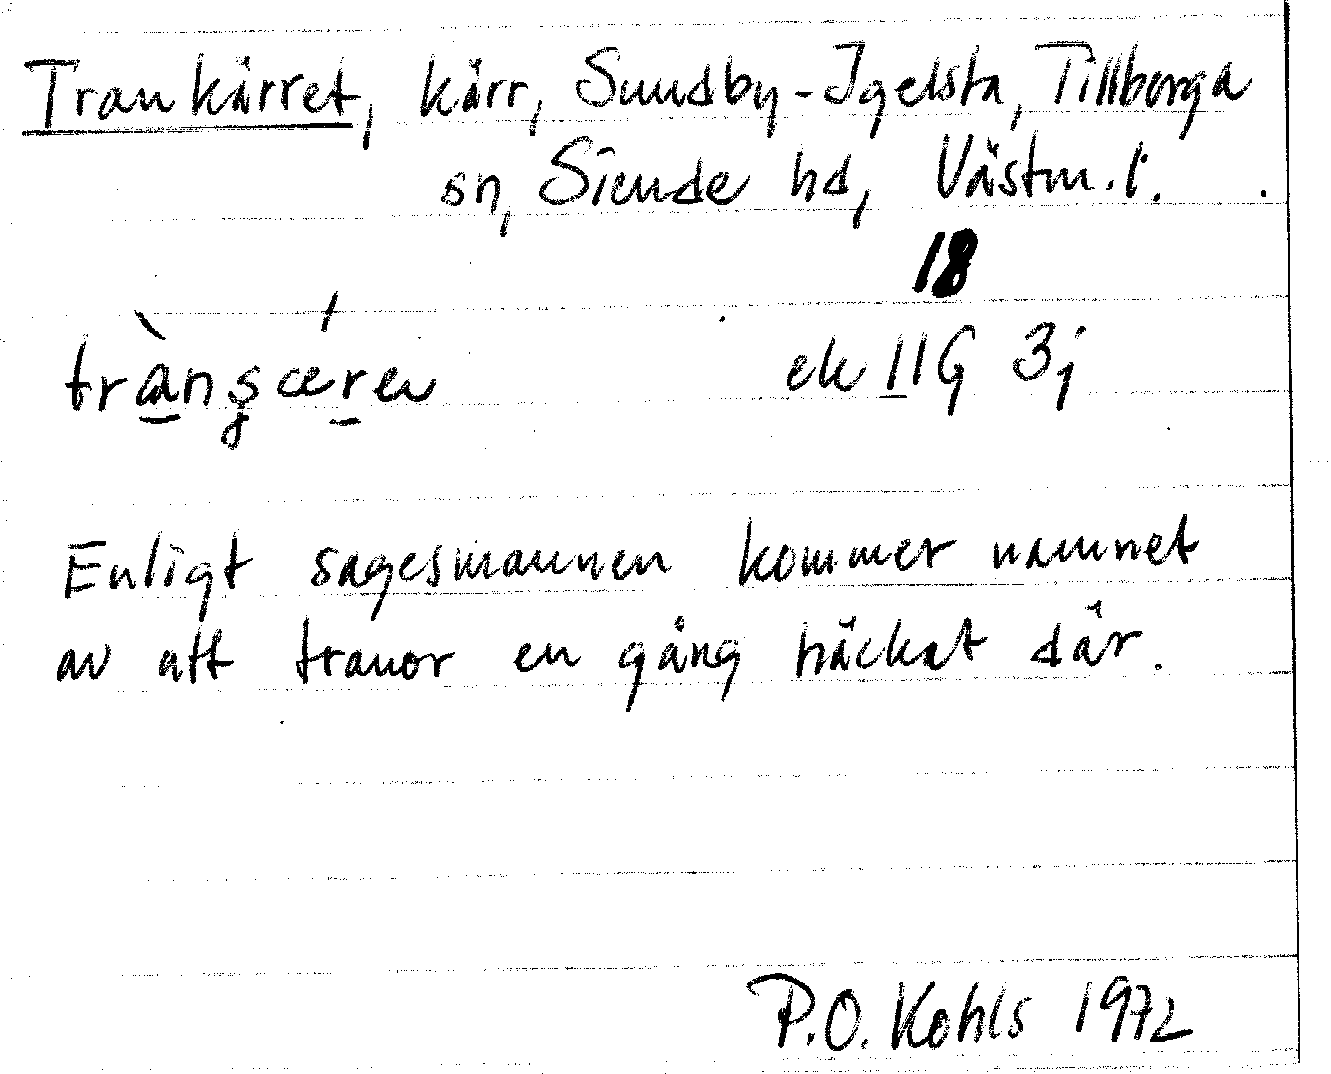 Trankärret, kärr, Sundby-Igelsta, Tillberga
sn, Siende hd, Västm. l.
18
trànʂǽren ek 11G 3j
Enligt sagesmannen kommer namnet
av att tranor en gång häckat där.
P.O. Kohls 1972